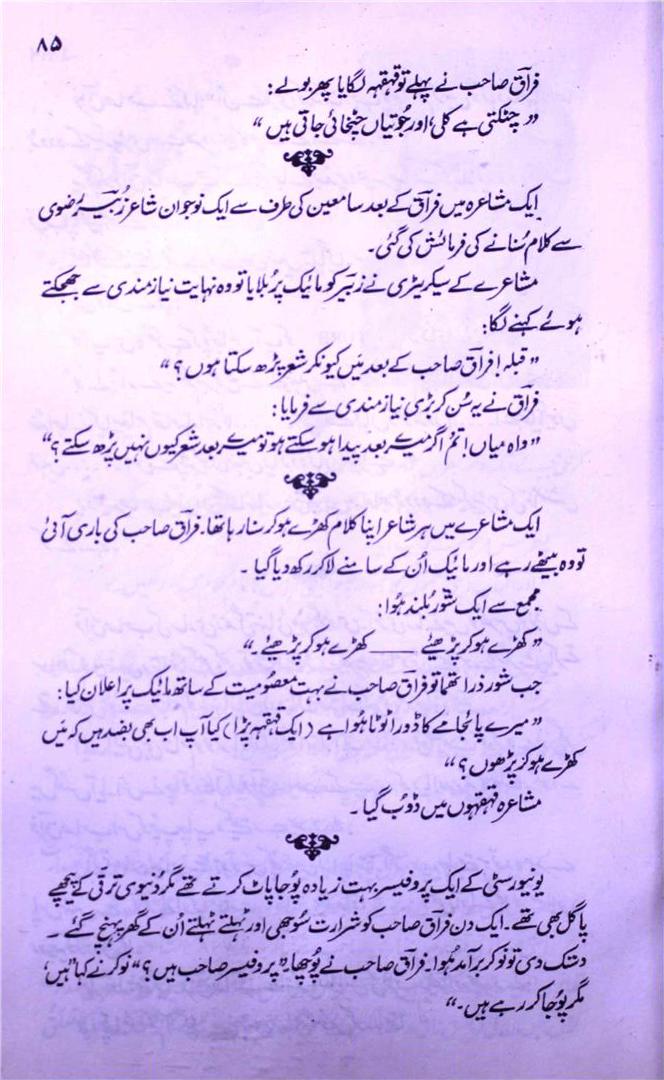 ۸۵
فراقؔ صاحب نے پہلے تو قہقہہ لگایا پھر بولے:
”چٹکتی ہے کلی، اور جوتیاں چٹخائی جاتی ہیں“
ایک مشاعرہ میں فراقؔ کے بعد سامعین کی طرف سے ایک نوجوان شاعر زُبیرؔ رضوی
سے کلام سُنانے کی فرمائش کی گئی۔
مشاعرے کے سیکریٹری نے زبیر کو مائیک پر بُلایا تو وہ نہایت نیازمندی سے جھجکتے
ہوئے کہنے لگا:
”قبلہ! فراقؔ صاحب کے بعد میَں کیونکر شعر پڑھ سکتا ہوں؟“
فراقؔ نے یہ سُن کر بڑی نیازمندی سے فرمایا:
”واہ میاں! تم اگر میرے بعد پیدا ہو سکتے ہو تو میرے بعد شعر کیوں نہیں پڑھ سکتے؟“
ایک مشاعرے میں ہر شاعر اپنا کلام کھڑے ہو کر سنا رہا تھا۔ فراقؔ صاحب کی باری آئی
تو وہ بیٹھے رہے اور مائیک اُن کے سامنے لا کر رکھ دیا گیا۔
مجمع سے ایک شور بُلند ہُوا:
”کھڑے ہو کر پڑھئے ــــــ کھڑے ہو کر پڑھئے۔“
جب شور ذرا تھما تو فراقؔ صاحب نے بہت معصومیت کے ساتھ مائیک پر اعلان کیا:
”میرے پائجامے کا ڈورا ٹوٹا ہُوا ہے (ایک قہقہہ پڑا) کیا آپ اب بھی بضد ہیں کہ میَں
کھڑے ہو کر پڑھوں؟“
مشاعرہ قہقہوں میں ڈوب گیا۔
یونیورسٹی کے ایک پروفیسر بہت زیادہ پُوجا پاٹ کرتے تھے مگر دُنیوی ترقی کے پیچھے
پاگل بھی تھے۔ ایک دن فراقؔ صاحب کو شرارت سُوجھی اور ٹہلتے ٹہلتے اُن کے گھر پہنچ گئے۔
دستک دی تو نوکر برآمد ہُوا۔ فراقؔ صاحب نے پُوچھا۔ ”پروفیسر صاحب ہیں؟“ نوکر نے کہا ”ہیں،
مگر پُوجا کر رہے ہیں۔“